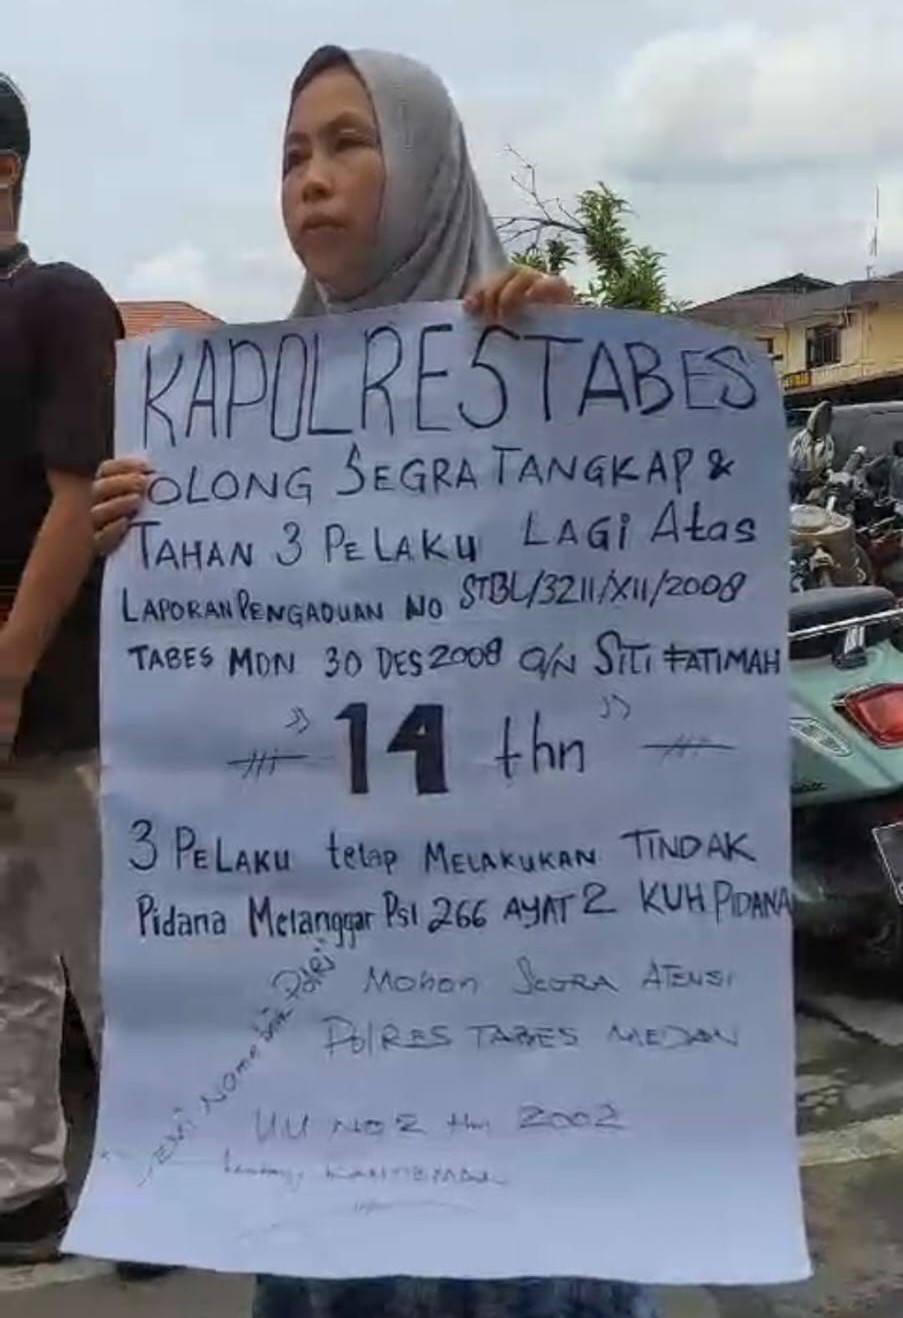 KAPOLRESTABES
TOLONG SEGRA TANGKAP &
TAHAN 3 PELAKU LAGi Atas
LAPORAN PENGADUAN NO STBL/3211/XII/2008
TABES MDN 30 DES 2008 a/N SiTi FATIMAH
" 14 thn "
3 PELAKU tetap MELAKUKAN TINDAK
Pidana Melanggar Psl 266 AYAT 2 KUH PIDANA
Mohon SEGRA ATENSI
POLRES TABES MEDAN
DEMI NAMA baik POLRI"
UU NO 2 thn 2002
tentang